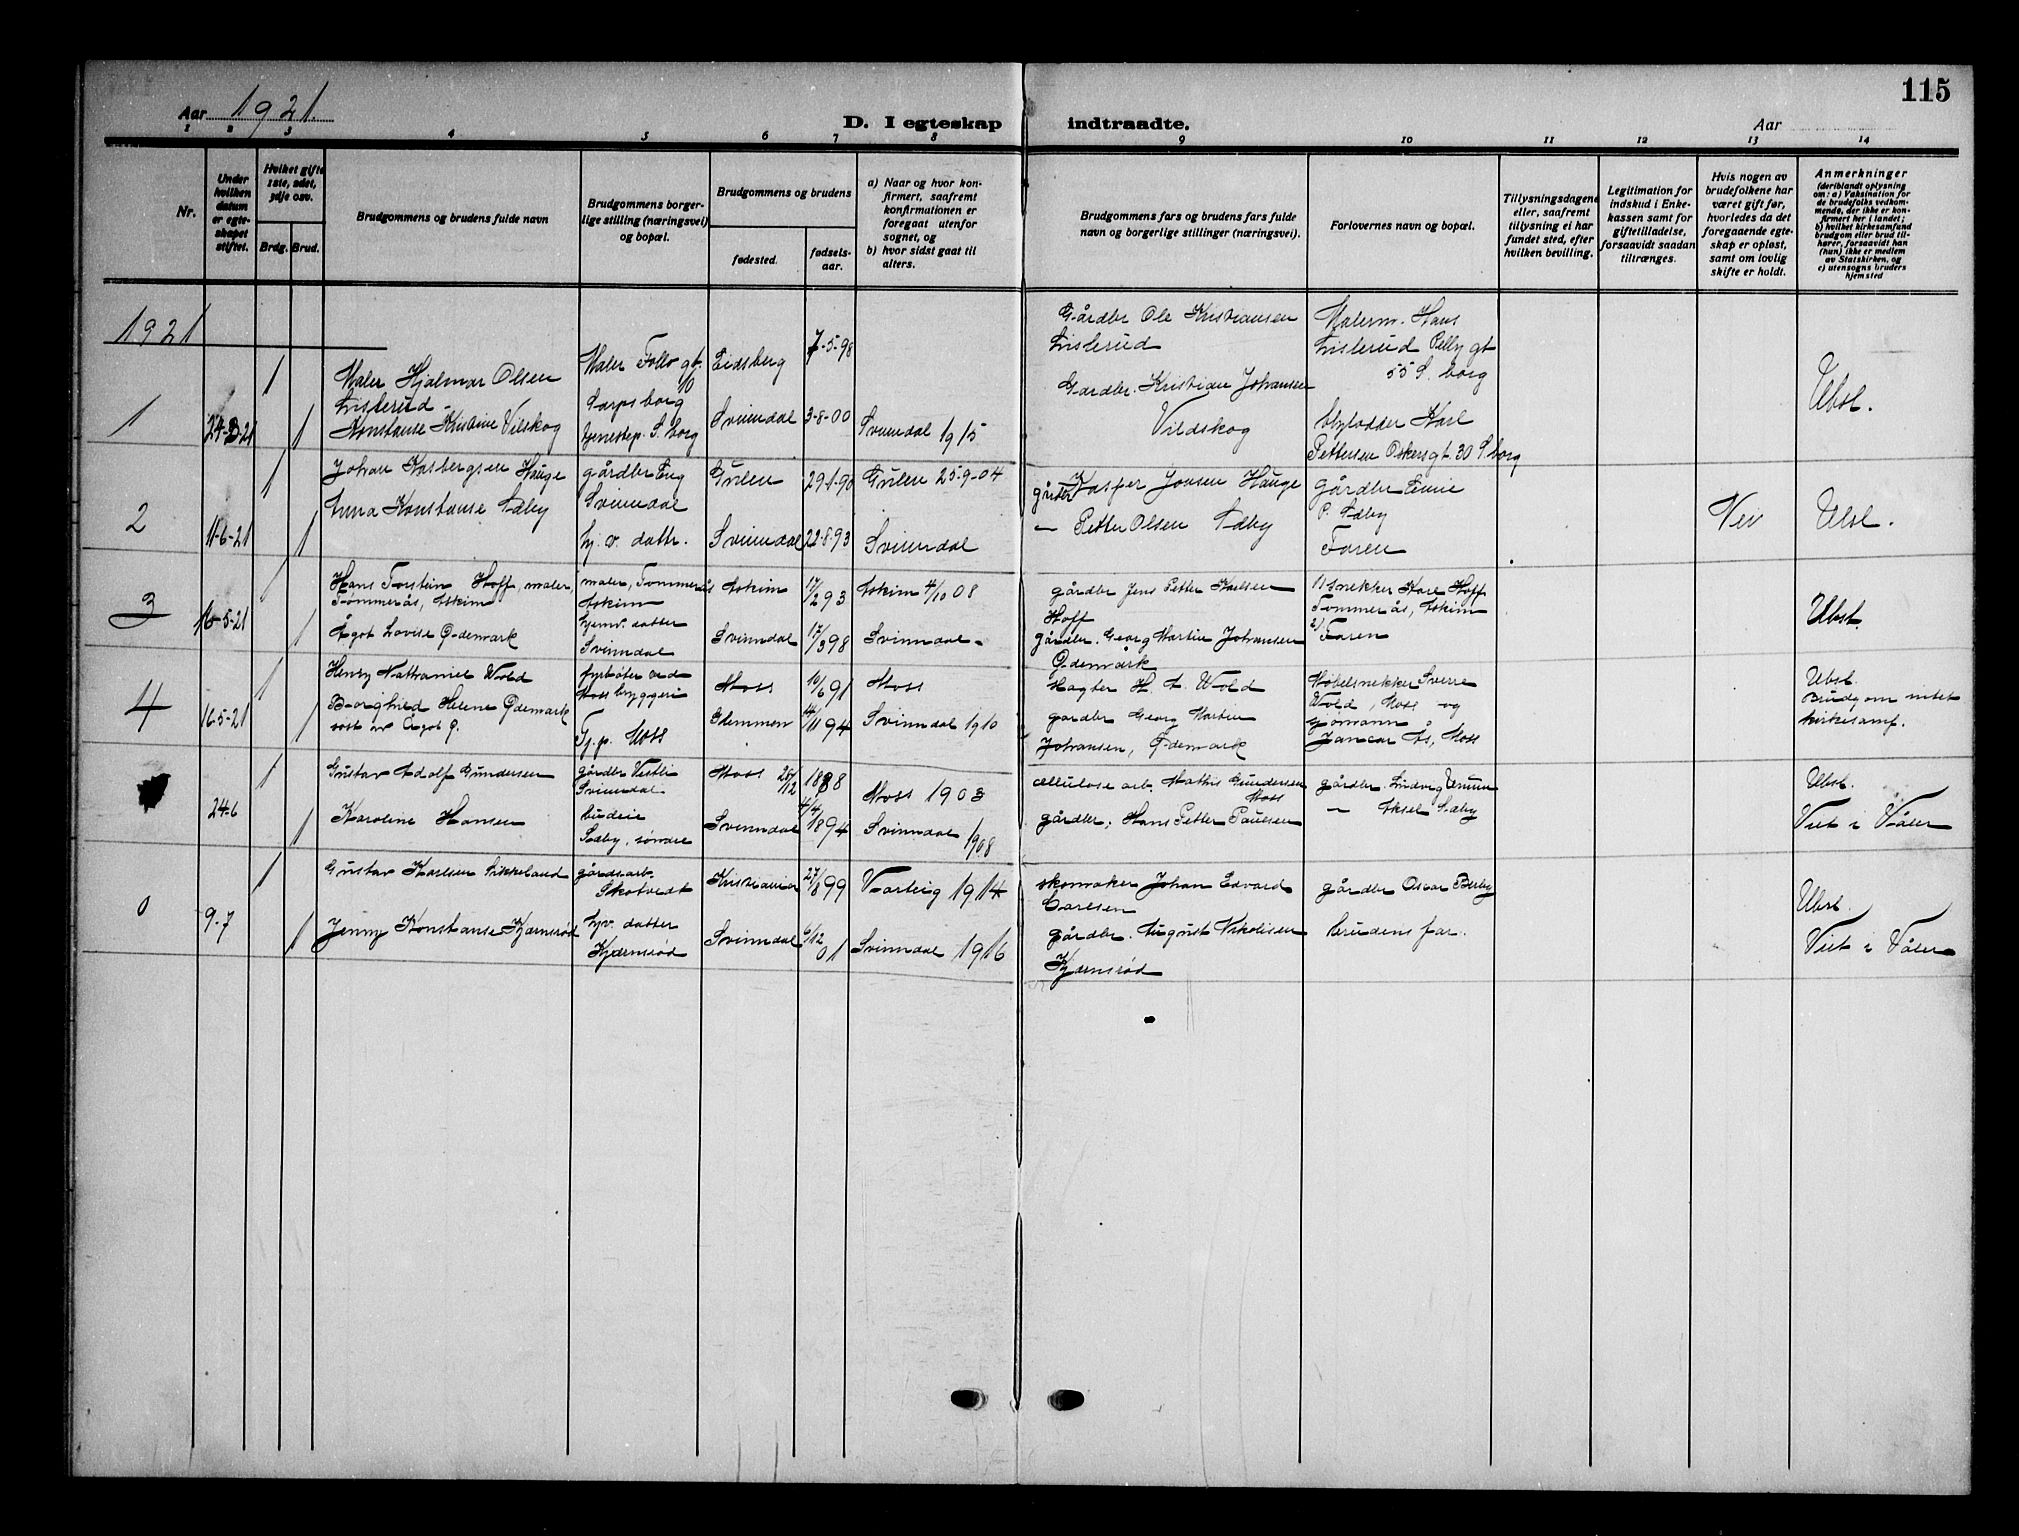 115
Aar 1921.
D. I egteskap indtraadte.
Aar
1 2 3 4 5 6 7 8 9 10 11 12 13 14
Nr.
Under
hvilken
datum
er egte-
skapet
stiftet.
Hvilket gifte
1ste, 2det,
3dje osv.
Brdg. Brud.
Brudgommens og brudens fulde navn
Brudgommens borger-
lige stilling (næringsvei)
og bopæl.
Brudgommens og brudens
fødested.
fødsels-
aar.
a) Naar og hvor kon-
firmert, saafremt
konfirmationen er
foregaat utenfor
sognet, og
b) hvor sidst gaat til
alters.
Brudgommens fars og brudens fars fulde
navn og borgerlige stillinger (næringsvei).
Forlovernes navn og bopæl.
Tillysningsdagene
eller, saafremt
tillysning ei har
fundet sted, efter
hvilken bevilling.
Legitimation for
indskud i Enke-
kassen samt for
giftetilladelse,
forsaavidt saadan
tiltrænges.
Hvis nogen av
brudefolkene har
været gift før,
hvorledes da det
foregaaende egte-
skap er opløst,
samt om lovlig
skifte er holdt.
Anmerkninger
(deriblandt oplysning
om: a) Vaksination for
de brudefolks vedkom-
mende, der ikke er kon-
firmert her i landet;
b) hvilket kirkesamfund
brudgom eller brud til-
hører, forsaavidt han
(hun) ikke er medlem
av Statskirken, og
c) utensogns bruders
hjemsted
1921
1
1 1
Maler Hjalmar Olsen
Listerud
Konstanse Kristine Vilskog
Maler Follo gt.
10
Sarpsborg
tjenestep. S. borg
Eidsberg
Svinndal
7-5-98
3-8-00
Svinndal 1915
Gårdbr Ole Kristiansen
Listerud
Gårdbr. Kristian Johansen
Vildskog
Malerm. Hans
Listerud Pellygt
55 S. borg
Karl
Pettersen Oskarsgt. 30 S. borg
Ubsl.
2
11-6-21
1 1
Johan Kasbergsen Hauge
Anna Konstanse Sæby
gårdbr Eng
Svinndal
hj. v. dattr.
Gulen
Svinndal
29-1-90
22-8-93
Gulen 25-9-04
Svinndal
gårdbr Kasper Jonsen Hauge
— Petter Olsen Sæby
gårdbr
P. Sæby
Faren
Nei
Ubsl.
3
16-5-21
1 1
Hans Torstein Hoff, maler,
Tømmerås, Askim
Ågot Lovise Ødemark
maler, Tømmerås
Askim
hjemv. datter
Svinndal
Askim
Svinndal
17/2 93
17/3 98
Askim 4/10 08
Svinndal
gårdbr Jens Petter Karlsen
Hoff
gårdbr. Georg Martin Johansen
Ødemark
1) Snekker Karl Hoff
Tømmerås, Askim
2) Faren
Ubsl.
4
16-5-21
1 1
Henry Nathaniel Wold
Borghild Helene Ødemark
søst av Ågot Ø.
fyrbøter ved
Moss bryggeri
Tj. p. Moss
Moss
Glemmen
10/6 91
14/11 94
Moss
Svinndal 1910
slagter H. A. Wold
gårdbr Georg Martin
Johansen, Ødemark
Møbelsnekker Sverre
Wold, Moss og
sjømann
As, Moss
Ubsl.
Brudgom
kirkesamf.
24-6
1 1
Gustav Adolf Gundersen
Karoline Hansen
gårdbr Vestli
Svinndal
budeie
Sæby, søndre
Moss
Svinndal
25/12 1888
4/4 1894
Moss 1903
Svinndal 1908
cellulose arb. Mathis Gundersen
Moss
gårdbr. Hans Petter Paulsen
gårdbr. Ludvig
— Aksel Sæby
Ubsl.
Viet i Våler
0
9-7
1 1
Gustav Karlsen Sikkeland
Jenny Konstanse Kjærnsrød
gårdsarb.
Skotvedt
hjv. datter
Kjærnsrød
Kristiania
Svinndal
27/8 99
6/12 01
Varteig 1914
Svinndal 1916
skomaker Johan Edvard
Carlsen
gårdbr. August Nikolisen
Kjærnsrød
gårdbr Oscar Berby
brudens far.
Ubsl.
Viet i Våler